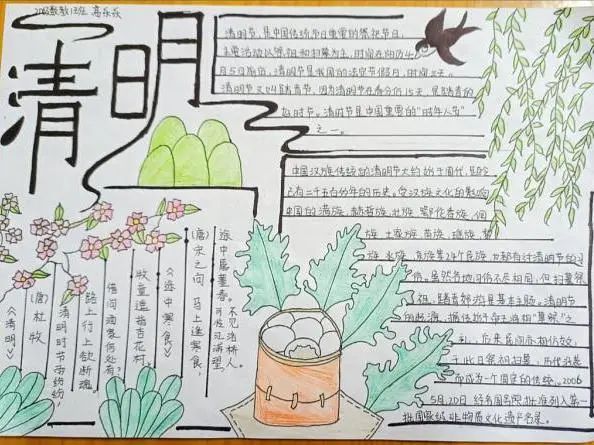 清明
清明节,是中国传统节日重要的祭祀节日,
主要活动以祭祖和扫墓为主,时间在阳历4
月5日前后,清明节是我国的法定节假日,时间三天。
清明节又叫踏青节,因为清明节在春分后15天,是踏青的
好时节。清明节是中国重要的“时年八节”
之一。
中国汉族传统的清明节大约始于周代,距今
已有二千五百多年的历史。受汉族文化的影响
中国的满族、赫哲族、壮族、鄂伦春族、侗
族、土家族、苗族、瑶族、黎
族、水族、京族等24个民族,也都有过清明节的习
俗。虽然各地习俗不尽相同,但扫墓祭
祖、踏青郊游是基本主题。清明节
后来民间亦相仿效,
于此日祭祖扫墓,历代沿袭
而成为一个固定的传统。2006
5月20日 经国务院批准列入第一
批国家级非物质文化遗产名录。
《途中寒食》
(唐)宋之问
马上逢寒食,
途中属暮春。
可怜江浦望,
不见洛桥人。
《清明》
(唐)杜牧
清明时节雨纷纷,
路上行人欲断魂。
借问酒家何处有?
牧童遥指杏花村。